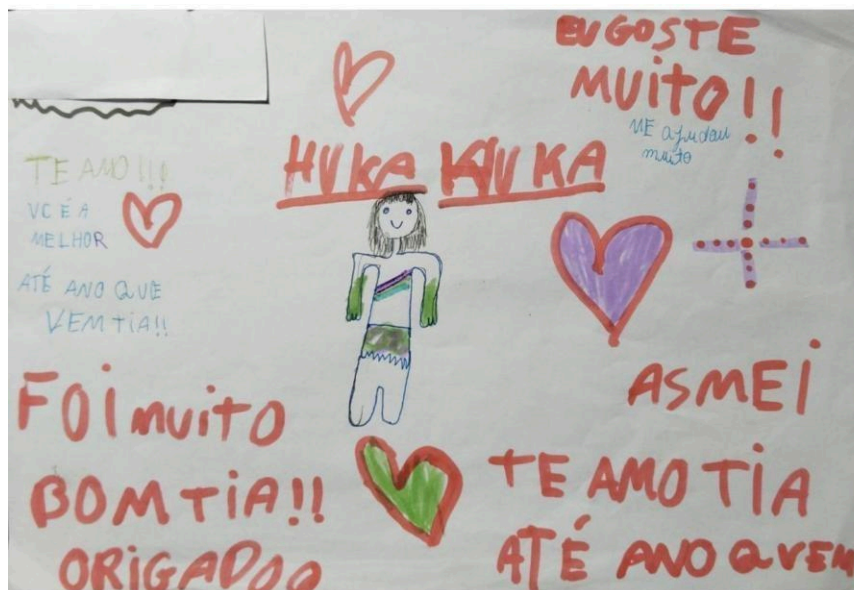 EU GOSTE
MUITO!!
ME ajudou
muito
HUKA KUKA
TE AMO!!!
VC É A
MELHOR
ATÉ ANO QUE
VEM TIA!!
ASMEI
FOI MUITO
BOM TIA!!
ORIGADOO
TE AMO TIA
ATÉ ANO QVEM